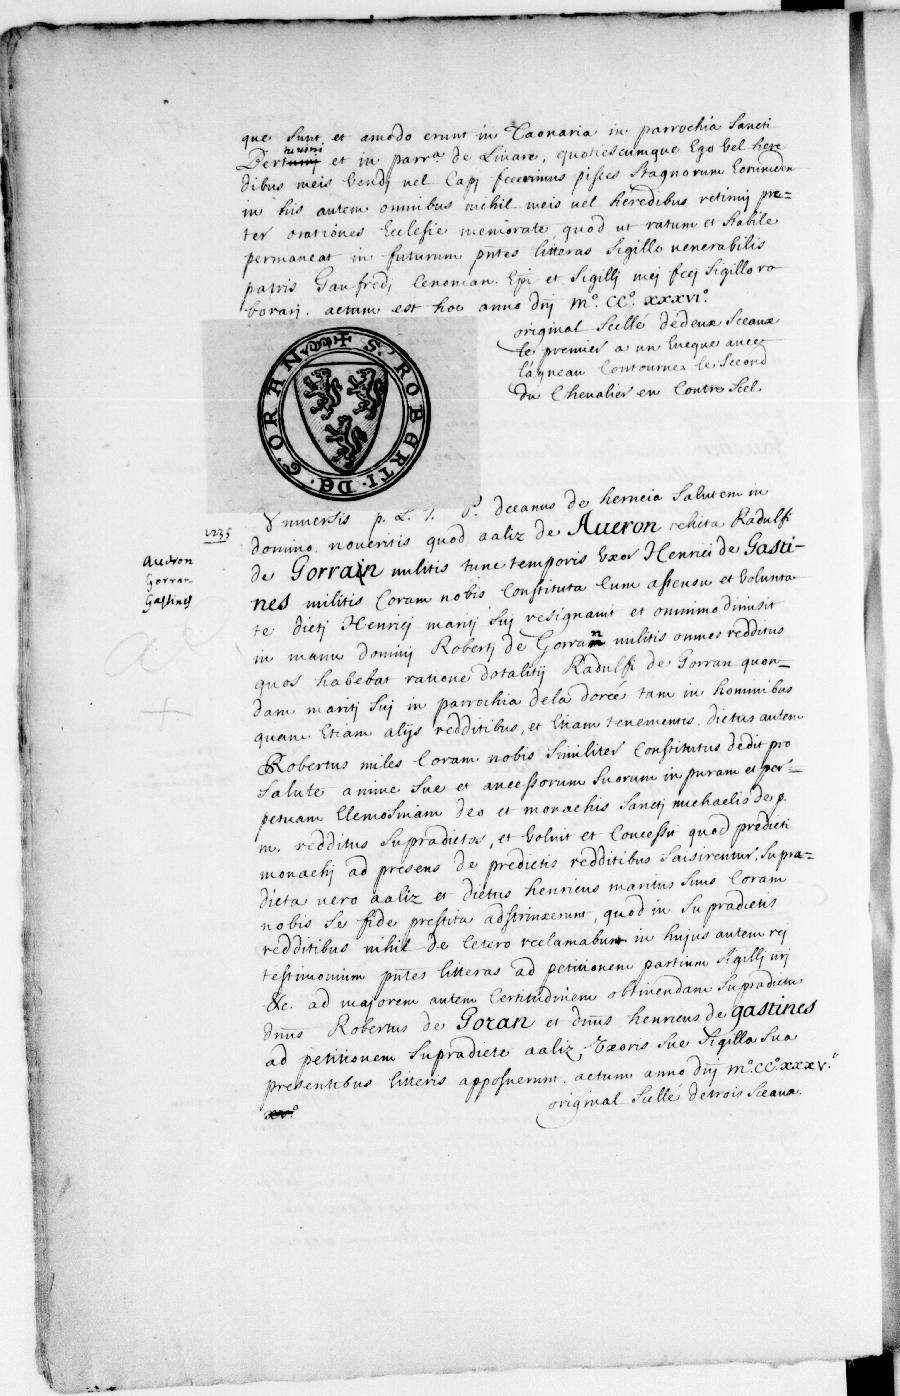 que sunt et amodo erunt in Taonaria in parrochia Sancti
Bertuuini et in parr.ª de Liuare, quotiescumque Ego vel here
dibus meis vendi vel Capi fecerimus pisces stagnorum Eorumdem
in his autem omnibus nihil meis uel heredibus retinui pre=
ter orationes Ecclesie memorate, quod ut ratum et stabile
permaneat in futurum pntes litteras sigillo uenerabilis
patris Gaufredi Cenoman. Epi et sigilli mei feci sigillo ro
borari. actum est hoc anno dnj Mº. CCº. xxxviº.
original Scellé dedeux Sceaux
le premier a un Eueque auec
l'agneau Contourné le Second
du Cheualier en Contre Scel.
✢ S. ROBERTI. DE. GORAN
Vniuersis p. L. J. P. decanus de herneia Salutem in
1235
domino. noueritis quod aaliz de Aueron relicta Radulfi
Aueron
de Gorrain militis tunc temporis vxor Henrici de Gasti-
Gorran
nes militis Coram nobis Constituta Cum assensu et volunta
Gastines
te dicti Henrici mariti sui resignauit et omnimo dimisit
in manu domini Roberti de Gorran militis omnes redditus
quos habebat ratione dotalitij Radulfi de Gorran quon-
dam mariti sui in parrochia dela dorée tam in hominibus
quam Etiam alijs redditibus, et Etiam tenementis. dictus autem
Robertus miles Coram nobis similiter Constitutus dedit pro
salute anime sue et ancessorum suorum in puram et per-
petuam Elemosinam deo et monachis Sancti michaelis de p.
m. redditus supradictos, et voluit et Concessit quod predicti
monachi ad presens de predictis redditibus saisirentur. supra=
dicta uero aaliz et dictus henricus maritus suus Coram
nobis se fide prestita adstrinxerunt, quod in supradictis
redditibus nihil de Cetero reclamabunt in hujus autem rej
testimonium pntes litteras ad petitionem partium sigilli nrj
&c. ad majorem autem Certitudinem obtinendam supradictus
dnus Robertus de Goran et dnus henricus de gastines
ad petitionem supradicte aaliz, vxoris sue sigilla sua
presentibus litteris apposuerunt. actum anno dnj mº.ccº.xxxv.º
original Scellé detrois Sceaux.